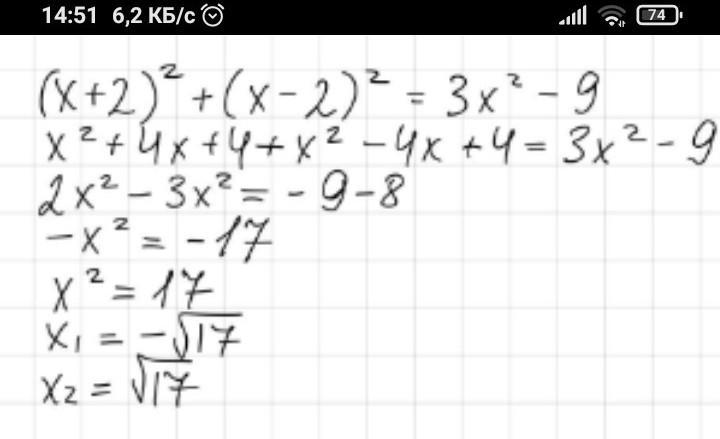 14:51 6,2 КБ/с 74
(x+2)² + (x-2)² = 3x² - 9
x² + 4x + 4 + x² - 4x + 4 = 3x² - 9
2x² - 3x² = - 9 - 8
-x² = -17
x² = 17
x₁ = -√17
x₂ = √17